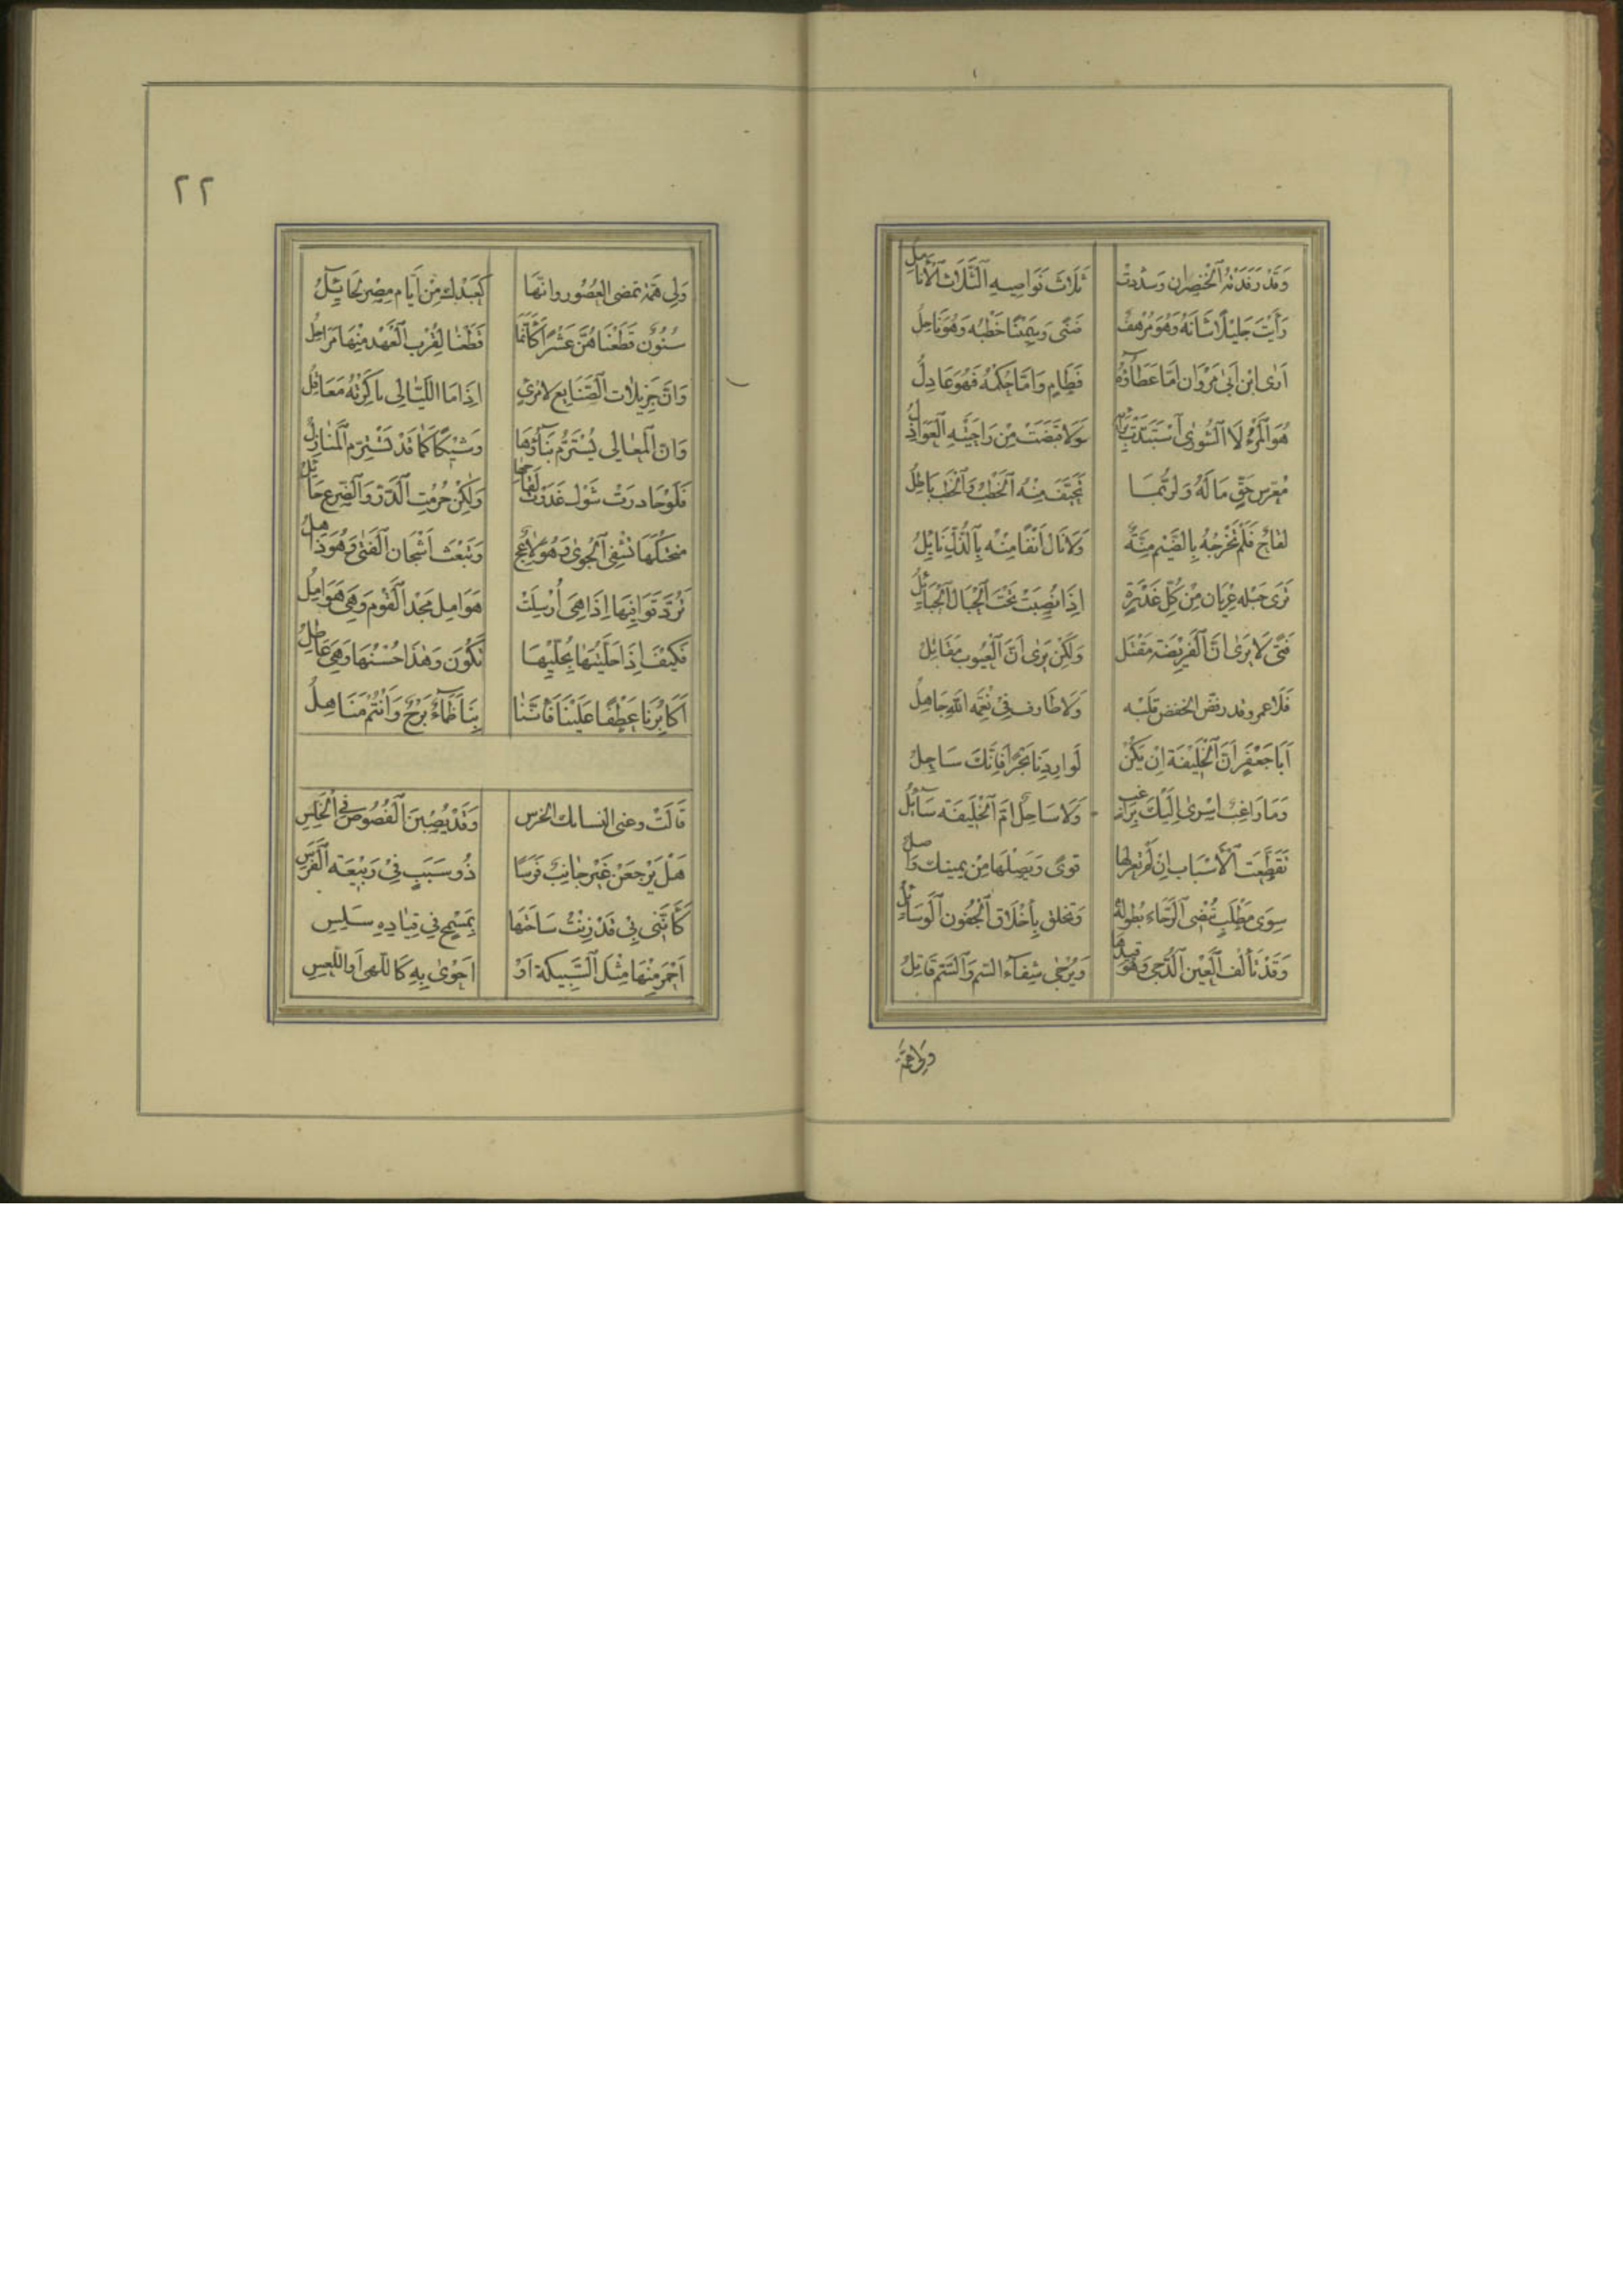 وَقَدْ رَفَدَتْهُ الْخِنْصِرَانِ وَسَدَّدَتْ ثَلَاثَ نَوَاصِيهِ الثَّلَاثُ الْأَنَامِلُ
رَأَيْتَ جَلِيلًا شَانُهُ وَهُوَ مُرْهَفٌ ضَنًى وَسَمِينًا خَطْبُهُ وَهُوَ نَاحِلُ
اَرَى ابْنَ اَبِى مَرْوَانَ اَمَّا عَطَاؤُهُ فَطَامٍ وَاَمَّا حُكْمُهُ فَهُوَ عَادِلُ
هُوَ الْمَرْءُ لَا الشُّورٰى اسْتَبَدَّتْ بِرَايِهِ وَلَا قَبَضَتْ مِنْ رَاحَتَيْهِ الْعَوَاذِلُ
مُعَرَّسُ حَقٍّ مَا لَهُ وَلَرُبَّمَا تَحَيَّفَ مِنْهُ الْخَطْبُ وَالْخَطْبُ بَاطِلُ
لَقَاحٌ فَلَمْ تَخْدِجْهُ بِالضَّيْمِ مِنَّةٌ وَلَا نَالَ اَنْفًا مِنْهُ بِالذُّلِّ نَائِلُ
تَرٰى حَبْلَهُ عُرْيَانَ مِنْ كُلِّ غَدْرَةٍ اِذَا نُصِبَتْ تَحْتَ الْحِبَالِ الْحَبَائِلُ
فَتًى لَا يَرٰى اَنَّ الْفَرِيصَةَ مَقْتَلٌ وَلٰكِنْ يَرٰى اَنَّ الْعُيُوبَ مَقَاتِلُ
فَلَا عمرو قد رقص الخفض قلبه وَلَا طَارِف فِى نِعْمَةِ اللهِ جَاهِلُ
اَبَا جَعْفَرٍ اَنَّ الْخَلِيفَةَ اِنْ يَكُنْ لَوَارِدِنَا بَحْرًا فَاِنَّكَ سَاحِلُ
وَمَا رَاغِبٌ اسْرٰى اِلَيْكَ بِرَاغِبٍ وَلَا سَاحِلٌ اَمَّ الْخَلِيفَةَ سَائِلُ
تَقَطَّعَتِ الْأَسْبَابُ اِنْ لَمْ تُعِرْ لَهَا قوًى وَيَصِلْهَا مِنْ يمِينِكَ وَاصِلُ
سِوٰى مَطْلَبٍ يُنْضِى الرَّجَاءَ بِطُولِهِ وَتَخلق بِأَخْلَاقِ الْجُفُونِ الْوَسَائِلُ
وَقَدْ تَأْلَفُ الْعَيْنُ الدُّجٰى وَهُوَ قَيْدُهَا وَيُرْجٰى شِفَاءُ السّمِ وَالسَّمُّ قَاتِلُ
ولى همّة
٢٢
وَلِى هِمَّةٌ تمضى العُصُورُ وانّهَا كَعَهْدِكَ مِنْ اَيَّامِ مِصْرَ لَحَائِلُ
سُنُونَ قَطَعْنَاهُنَّ عَشْرًا كَأَنَّمَا قَطَعْنَا لِقُرْبِ الْعَهْدِ مِنْهَا مَرَاحِلُ
وَانَّ جَزِيلَاتِ الصَّنَايِعِ لِامْرِئٍ اِذَا مَا اللَّيَالِى نَاكَرَتْهُ مَعَاقِلُ
وَانَّ الْمَعَالِى يُسْتَرَمُّ بِنَاؤُهَا وَشِيْكًا كَمَا قَدْ تُسْتَرَمُّ الْمَنَازِلُ
فَلَوْ حَارَدَتْ شَوْلٌ عَذَرْتُ لِقَاحَهَا وَلٰكِنْ حُرِمْتَ الدَّرَّ وَالضَّرْعُ حَافِلُ
منحتكَهَا تَشْفِى الْجَوٰى وَهُوَ لَاعِجٌ وَتَبْعَثُ اَشْجَانَ الْفَتٰى وَهُوَ ذَاهِلُ
تَرُدُّ قَوَافِيهَا اِذَا هِىَ اُرْسِلَتْ هَوَامِلَ مَجْدِ الْقَوْمِ وَهِىَ هَوَامِلُ
فَكَيْفَ اِذَا حَلَّيْتَهَا بِحُلِيِّهَا تَكُونُ وَهٰذَا حُسْنُهَا وَهِىَ عَاطِلُ
اَكَابِرَنَا عَطْفًا عَلَيْنَا فَاِنَّنَا بِنَا ظَمَاءٌ بَرْحٌ وَاَنْتُمْ مَنَاهِلُ
قَالَتْ وعى النسا كالخرس وَقَدْ يُصِبْنَ الْفُصُوصَ فِى الْخُلَسِ
هَلْ يَرْجِعَنْ غَيْرَ جَانِبٍ فَرَسًا ذُو سَبَبٍ فِى رَبِيْعَةِ الْفَرَسِ
كَأَنَّنِى بِى قَدْ زِنْتُ سَاحَتَهَا بِمُسْمِحٍ فِى قِيَادِهِ سَلِسِ
اَحْمَرَ مِنْهَا مِثْلَ السَّبِيكَةِ اَوْ اَحْوٰى بِهِ كَاللَّمٰى اَوِ اللَّعَسِ